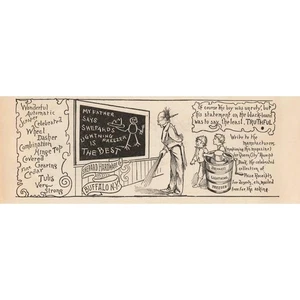 Wonderful
Automatic
Scraper
Celebrated
Wheel
Dasher
Combination
Hinge Top
Covered
Gearing
Cedar
Tubs
Very
Strong
MY FATHER
SAYS
SHEPARD'S
LIGHTNING
FREEZER
IS
THE BEST
SHEPARD HARDWARE CO
BUFFALO N.Y.
Of course the boy was unruly, but
his statement on the blackboard
was to say, the least, TRUTHFUL.
Write to the
manufacturers,
for Queen City Receipt
Book, the celebrated
collection of
Receipts
for deserts, etc, mailed
free for the asking
LIGHTNING
FREEZER